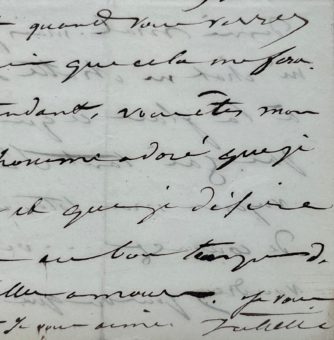 quand vous verrez
que cela me fera
vous êtes mon
homme adoré que je
et que je désire
au bon
amour. Je vous
Je vous aime. Juliette